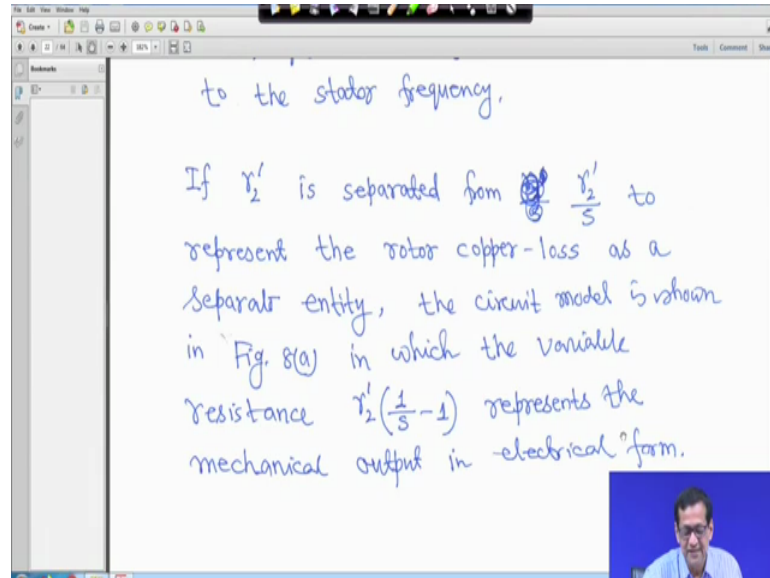 File Edit View Window Help
Create
22 / 94
182%
Tools Comment
Bookmarks
to the stator frequency.
If r₂′ is separated from r₂′/s to
represent the rotor copper-loss as a
separate entity, the circuit model is shown
in Fig. 8(a) in which the variable
resistance r₂′(1/s - 1) represents the
mechanical output in electrical form.